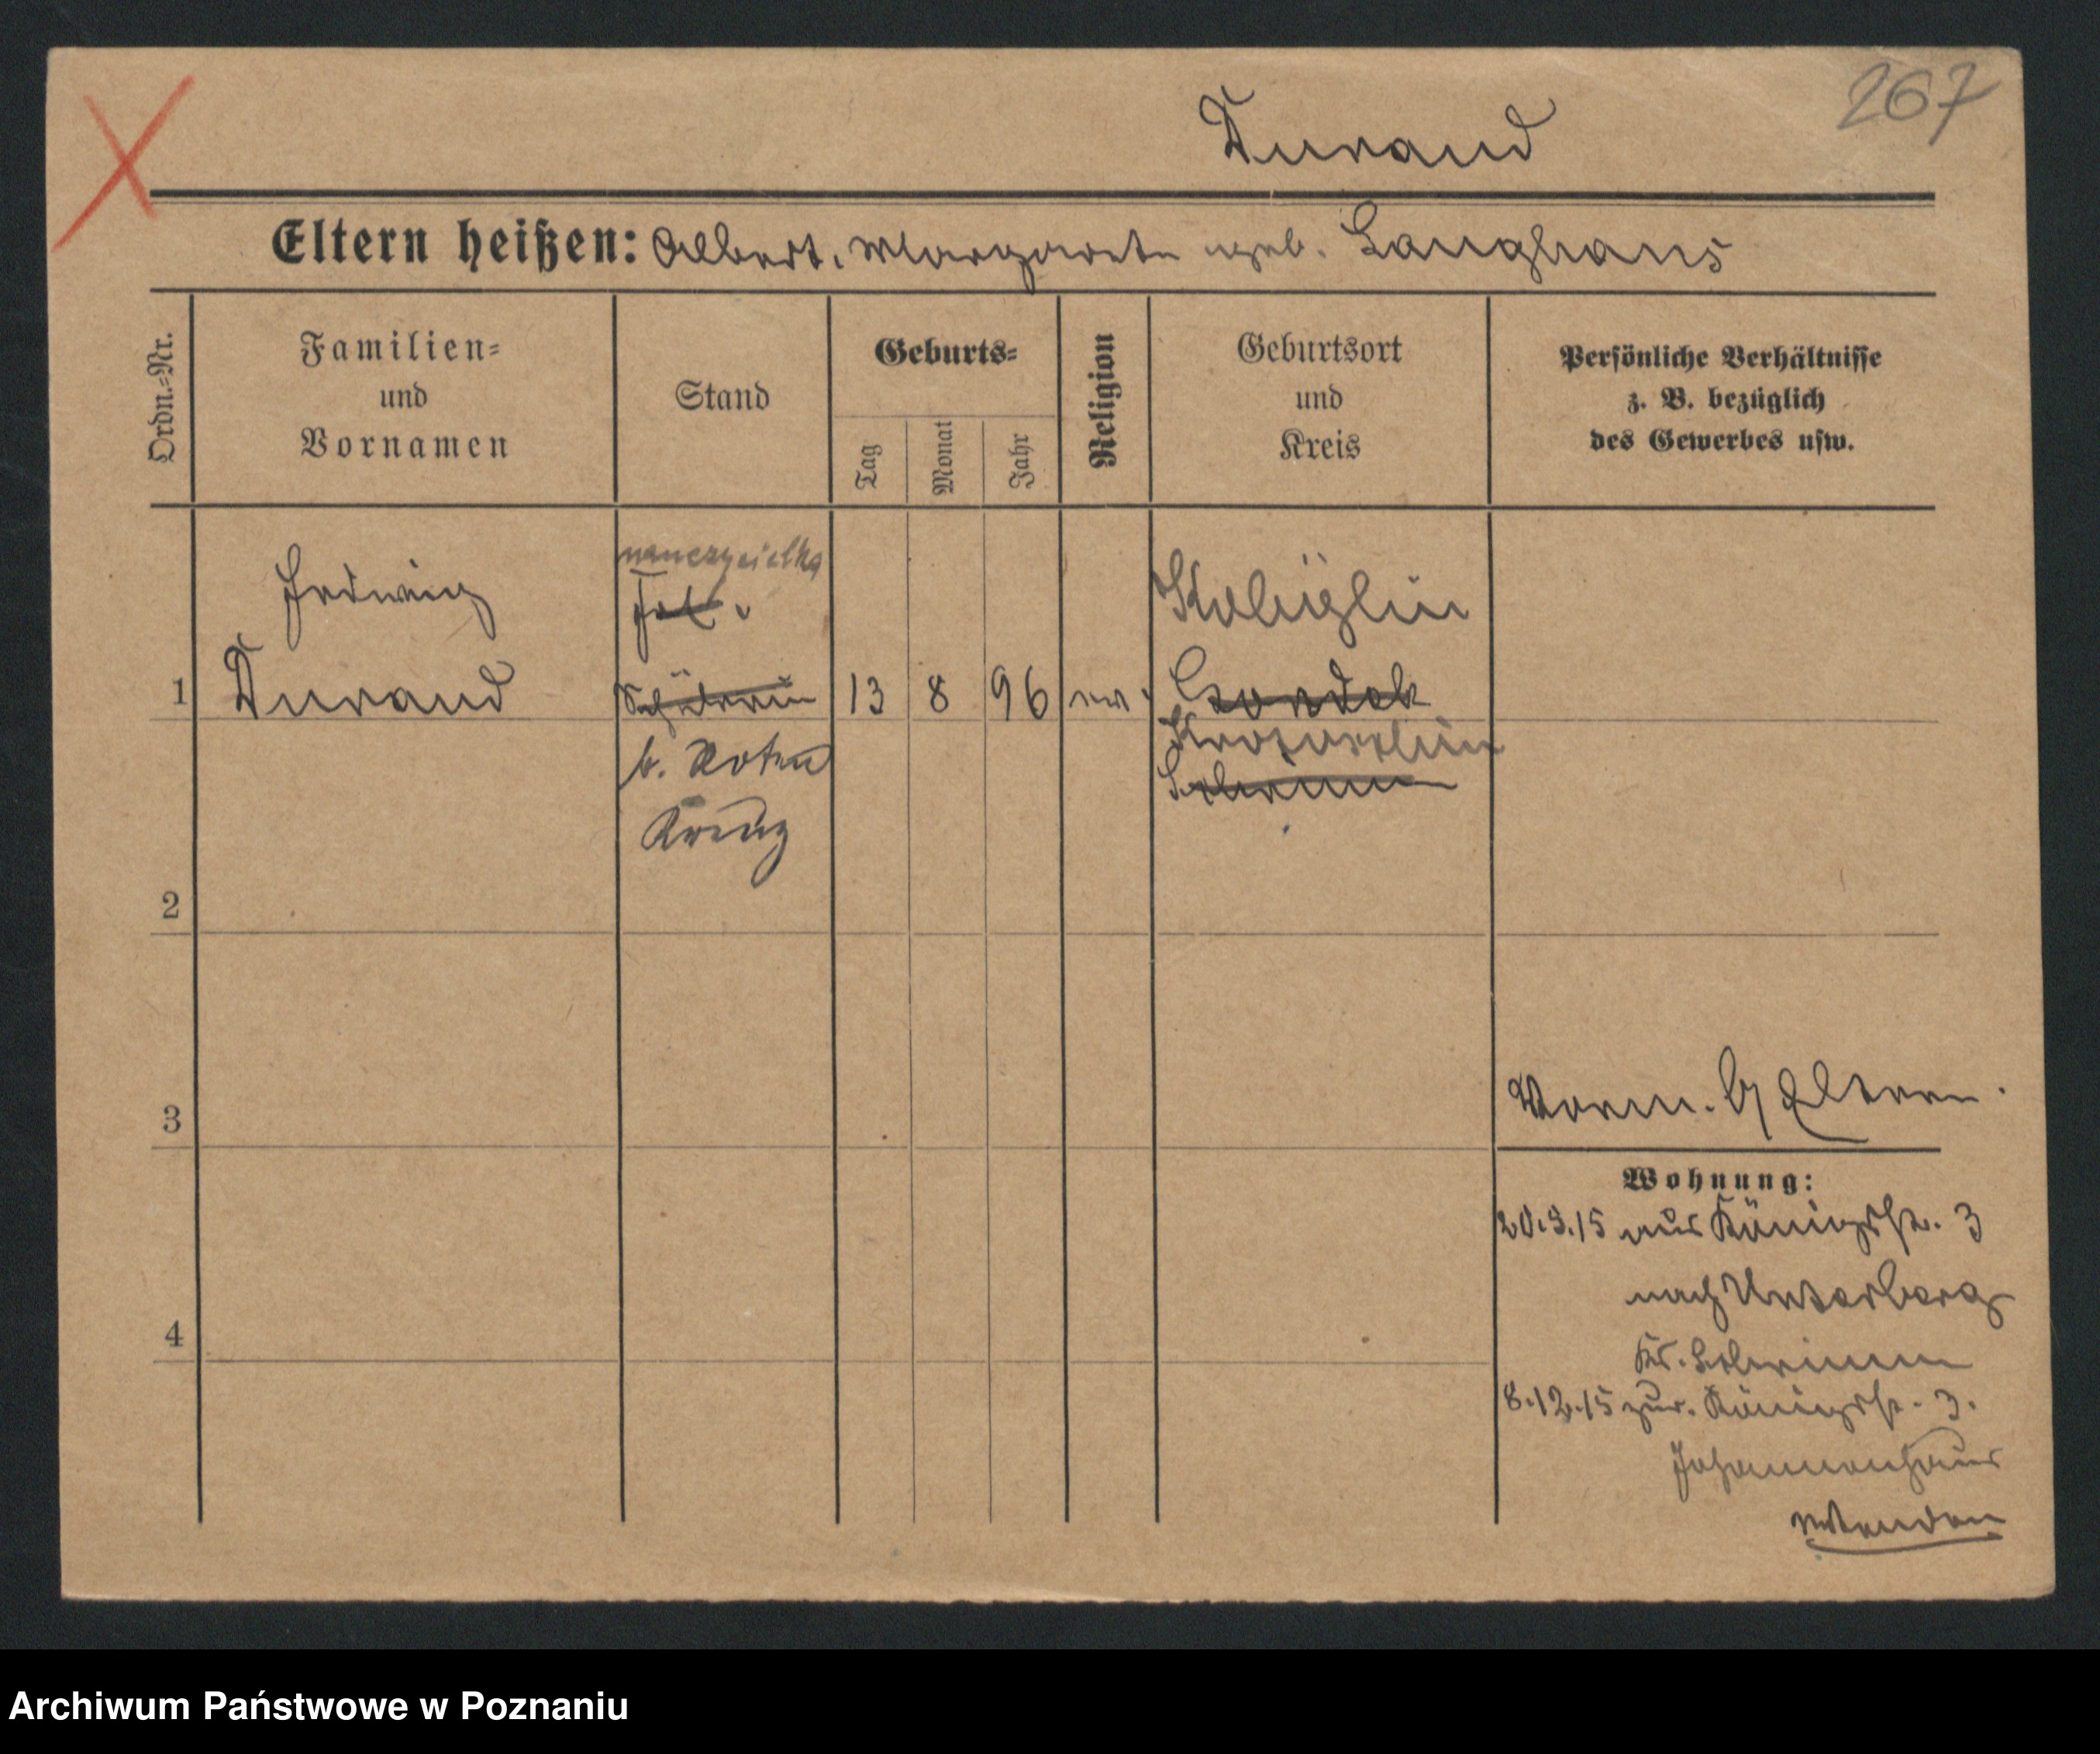 267
Durand
Eltern heißen: Albert, Margarete geb. Langhans
Ordn.-Nr.
Familien-
und
Vornamen
Stand
Geburts-
Tag
Monat
Jahr
Religion
Geburtsort
und
Kreis
Persönliche Verhältnisse
z. B. bezüglich
des Gewerbes usw.
nauczycielka
Hedwig
Frl.
1 Durand Schülerin 13 8 96 ev.
Krotoschin
b. Roten
Schrimm
Kreuz
2
3
Vorm. b. Eltern.
Wohnung:
20.3.15 aus Königstr. 3
nach Unterberg
4
Kr. Schrimm
8.12.15 zur. Königstr. 3.
Johannenhaus
wenden
Archiwum Państwowe w Poznaniu